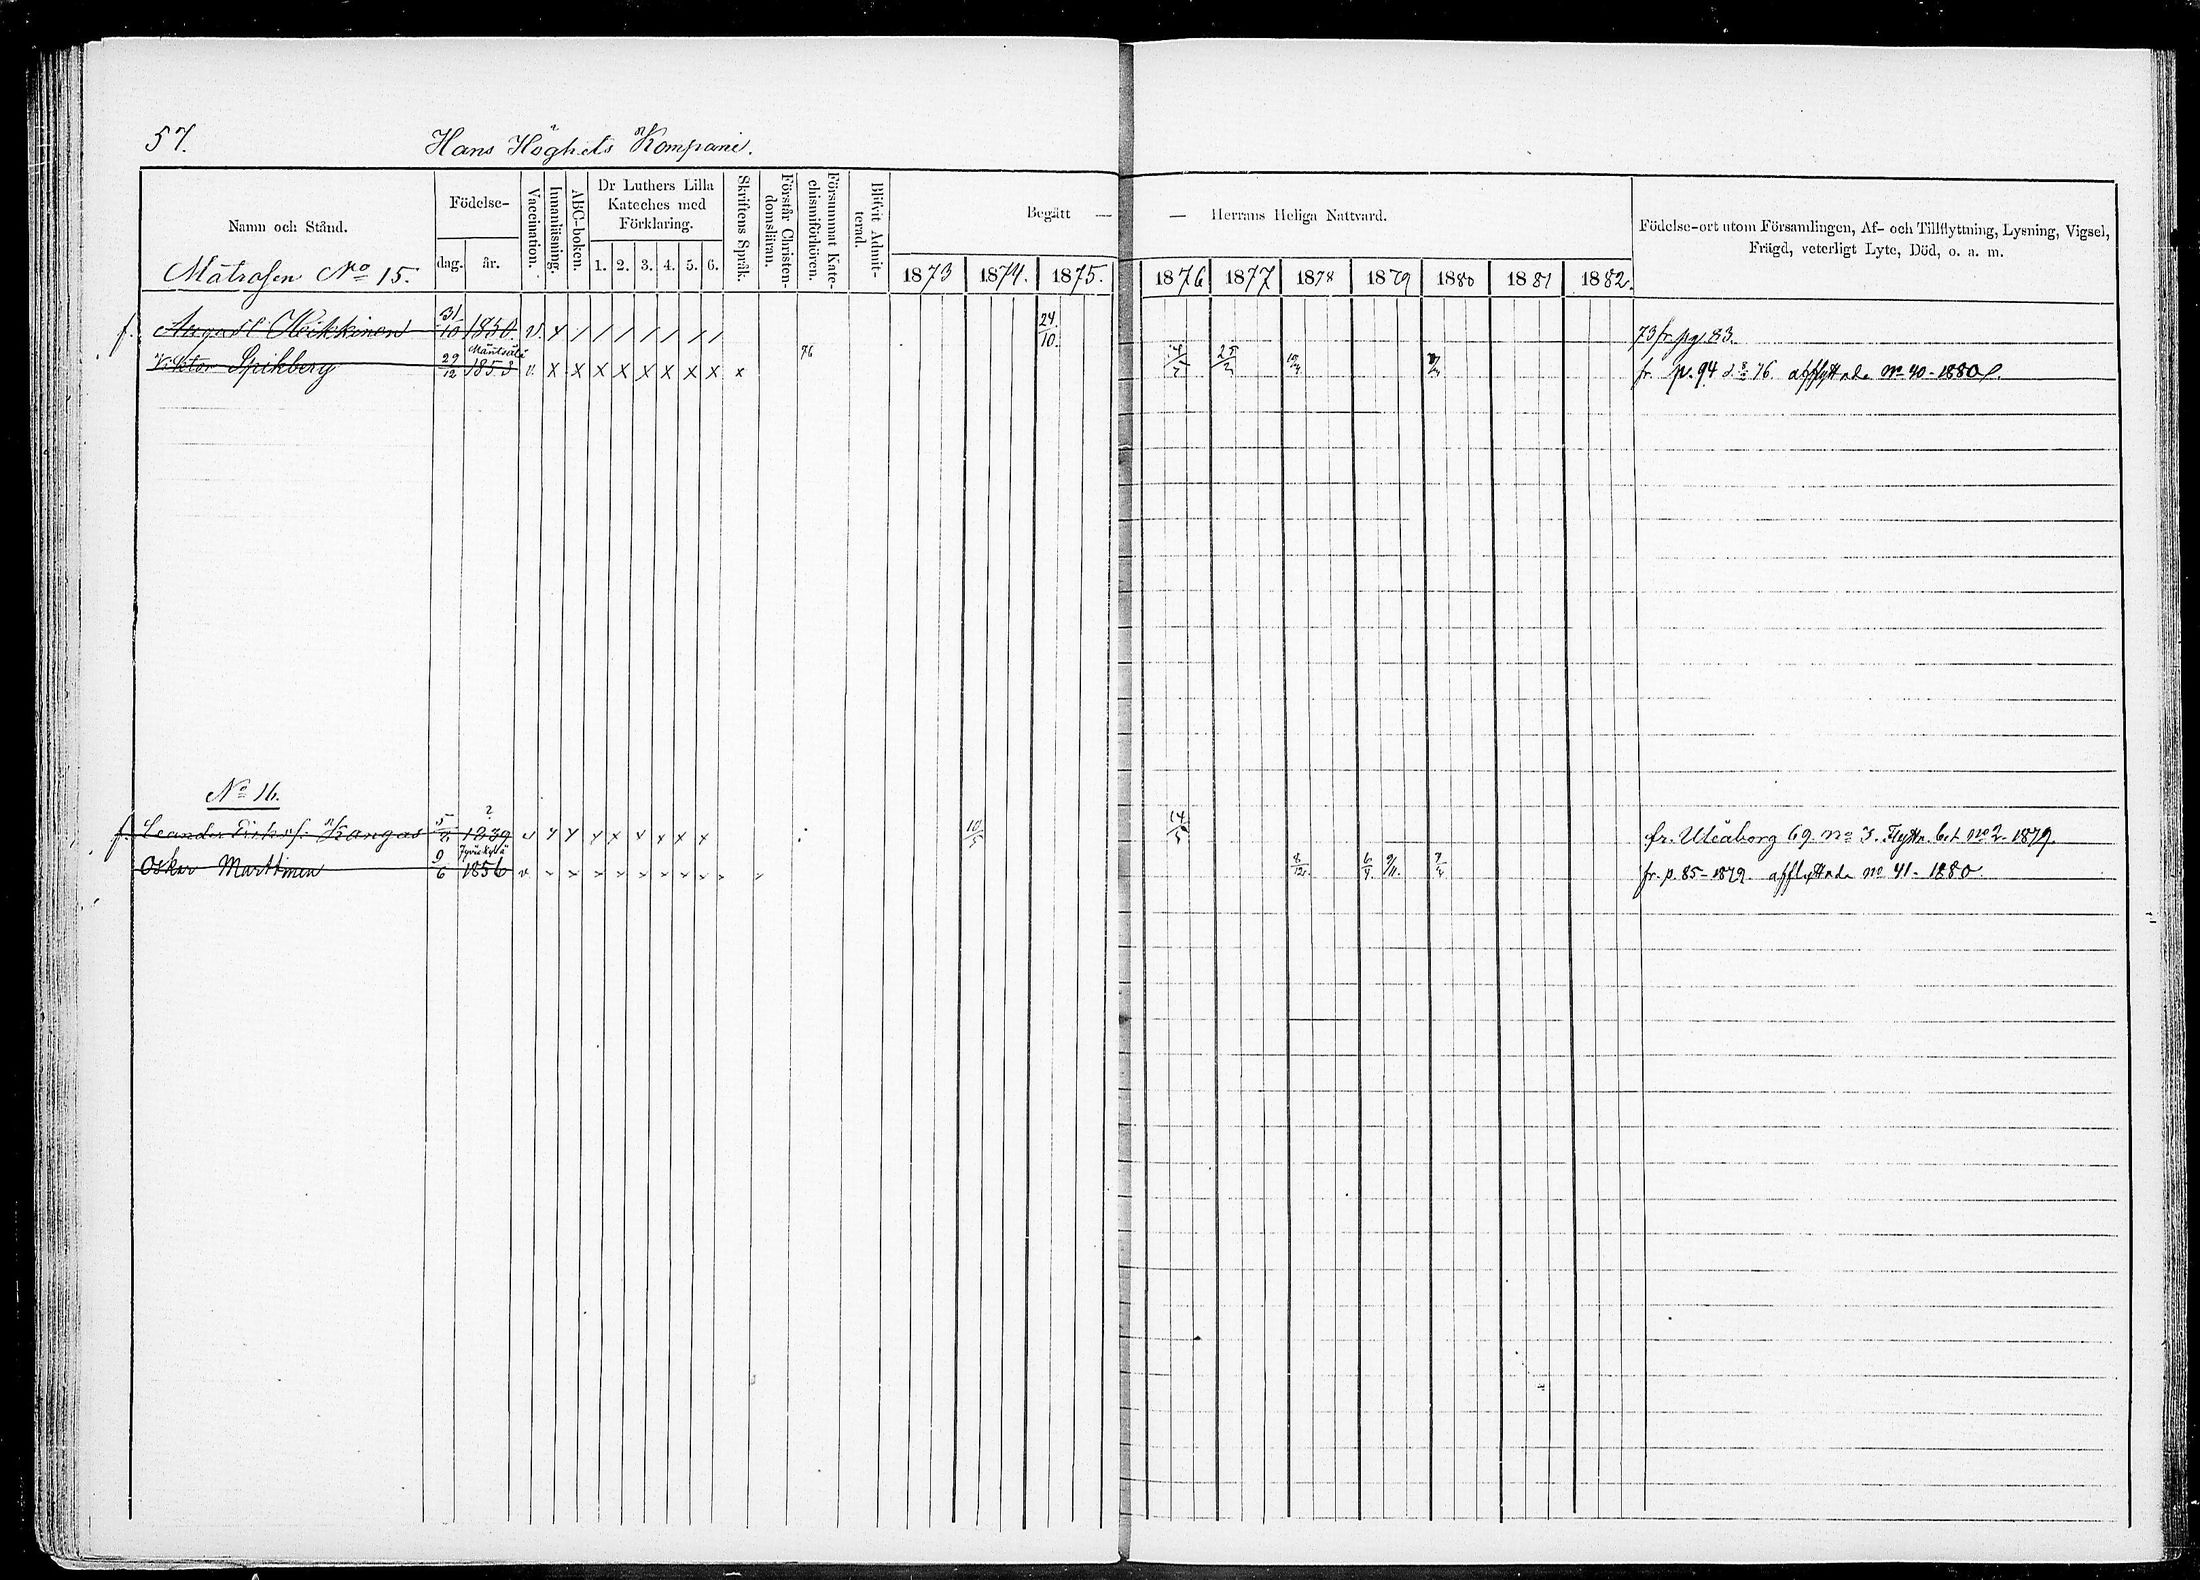 57. Hans Höghets Kompani.
Namn och Stånd. Födelse- dag. år. Vaccination. Innanläsning. ABC-boken. Dr Luthers Lilla Kateches med Förklaring. 1. 2. 3. 4. 5. 6. Skriftens Språk. Förstår Christen-domsläran. Försummat Kate-chismiförhören. Blifvit Admit-terad. Begått — — Herrans Heliga Nattvard. Födelse-ort utom Församlingen, Af- och Tillflyttning, Lysning, Vigsel, Frägd, veterligt Lyte, Död, o. a. m.
Matrosen No 15. 1873 1874. 1875. 1876 1877 1878 1879 1880 1881 1882.
f. August Heikkinen 31/10 1850. v. 24/10. 73 fr. pg. 83.
Mäntsälä
Viktor Spikberg 29/12 1853 v. x x x x x x x x x 76 25/2 fr. p. 94 76. afflyttade No 40-1880.
No 16.
?
f. Leander Kangas 1839 v 10/5 14/5 fr. Uleåborg 69. No 3. Flyttn. bet No 2-1879.
Jyväskylä
Oskar Marttinen 9/6 1856 v 8/12. 6/4. 9/11. fr. p. 85-1879. afflyttade No 41-1880.